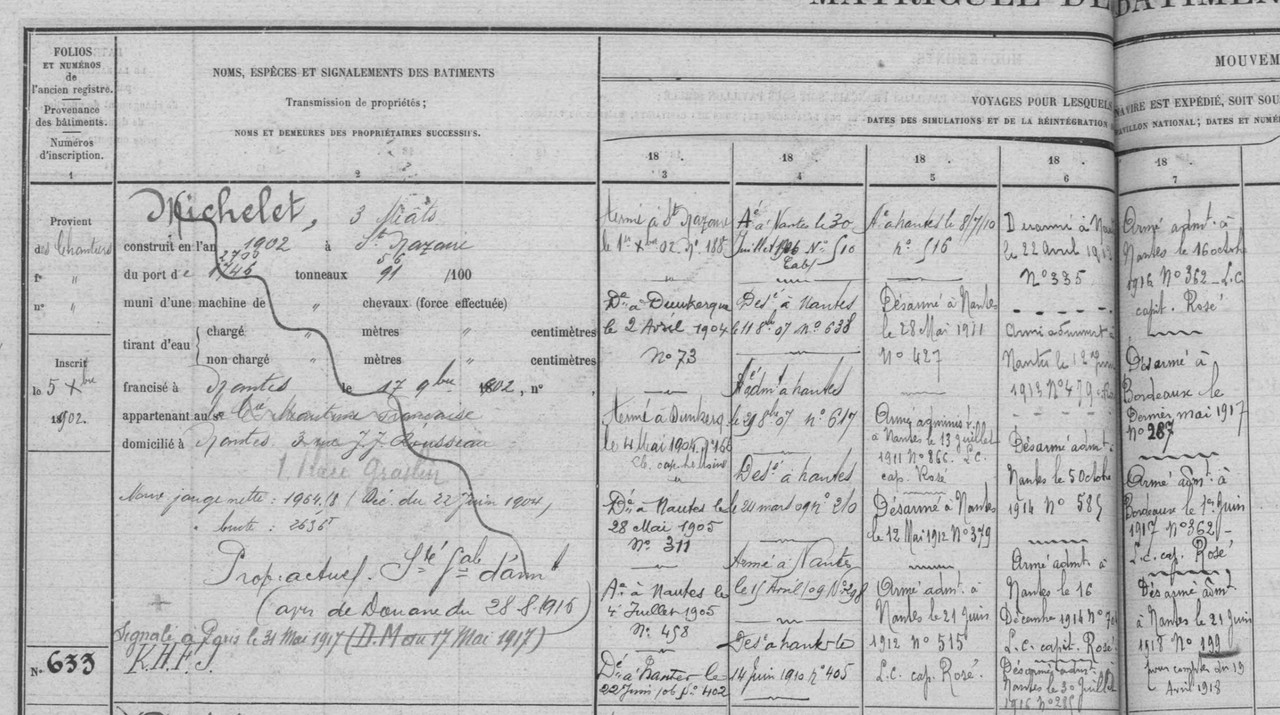 MATRICULE DE BATIMEN
FOLIOS
ET NUMÉROS
de
l'ancien registre.
Provenance
des bâtiments.
Numéros
d'inscription.
1
NOMS, ESPÈCES ET SIGNALEMENTS DES BATIMENTS
Transmission de propriétés;
NOMS ET DEMEURES DES PROPRIÉTAIRES SUCCESSIFS.
2
MOUVEM
VOYAGES POUR LESQUELS
NAVIRE EST EXPÉDIÉ, SOIT SOU
DATES DES SIMULATIONS ET DE LA RÉINTÉGRATION
PAVILLON NATIONAL; DATES ET NUMÉ
18 .
3
18 .
4
18 .
5
18 .
6
18 .
7
Provient
des Chantiers
fo "
no "
Inscrit
le 5 Xbre
1902.
No 633
Michelet, 3 Mâts
construit en l'an 1902 à St Nazaire
2706 56
du port de 1746 tonneaux 91 /100
muni d'une machine de " chevaux (force effectuée)
tirant d'eau
chargé " mètres " centimètres
non chargé " mètres " centimètres
francisé à Nantes le 17 9bre 1902, no ,
appartenant au sr Cie Maritime Française
domicilié à Nantes 2 rue J.J. Rousseau
1. Place Graslin
Nouv. jauge nette : 1954,18 (Déc. du 22 juin 1904,
" brute : 2636T
Prop. actuel. Sté Gale d'armt
(avis de Douane du 28 8 1916)
Signalé à Paris le 31 Mai 1917 (D.M du 17 Mai 1917)
K.H.F.J.
Armé à St Nazaire
le 1er Xbre 02 No 188
Dé à Dunkerque
le 2 Avril 1904
No 73
Armé à Dunkerq
le 4 Mai 1904. no 166
Dé à Nantes le
28 Mai 1905
No 311
Aé à Nantes le
4 Juillet 1905
No 458
Dé à Nantes le
22 Juin 06 No 402
Aé à Nantes le 30
Juillet 1906 No 510
Desé à Nantes
le 11 8bre 07 no 638
Aé admt à nantes
le 21 8bre 07 no 617
Desé à nantes
le 20 mars 09 no 210
Armé à Nantes
le 15 Avril 09 No 298
Desé à nantes le
14 juin 1910 no 405
Aé à nantes le 8/7/10
no 516
Désarmé à Nantes
le 28 Mai 1911
No 427
à Nantes le 13 juillet
1911 No 866. L.C.
cap. Rosé
Désarmé à Nantes
le 12 Mai 1912 No 379
Armé admt. à
Nantes le 21 Juin
1912 no 515
L.C. cap. Rosé.
le 22 Avril 1913
No 335
1913 No 479
Désarmé admt.
Nantes le 5 Octobre
1914 No 585
Armé admt. à
Nantes le 16
Décembre 1914 No
L.C. capit. Rosé
Désarmé admt.
Nantes le 30 Juillet
1916 No 285
Armé admt. à
Nantes le 16 octobre
1916 No 362 - L.C.
capit. Rosé
Désarmé à
Bordeaux le
Dernier mai 1917
No 287
Armé admt. à
Bordeaux le 1er Juin
1917 No 362
L.C. cap. Rosé
Désarmé admt.
à Nantes le 21 Juin
1918 No 199
pour compter du 19
Avril 1918